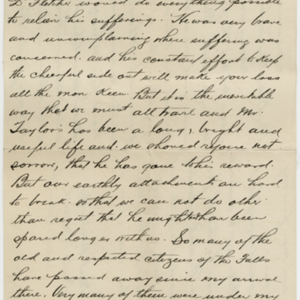 D. Father would do everything possible
to relieve his sufferings. He was very brave
and uncomplaining where suffering was
concerned. and his constant effort to keep
the cheerful side out will make your loss
all the more keen. But it is the inevitable
way that we must all travel and Mr.
Taylor's has been a long, bright and
useful life and we should rejoice not
sorrow, that he has gone to his reward.
But our earthly attachments are hard
to break. so that we can not do other
than regret that he might not have been
spared longer with us. So many of the
old and respected citizens of the Falls
have passed away since my arrival
there. Very many of these were under my